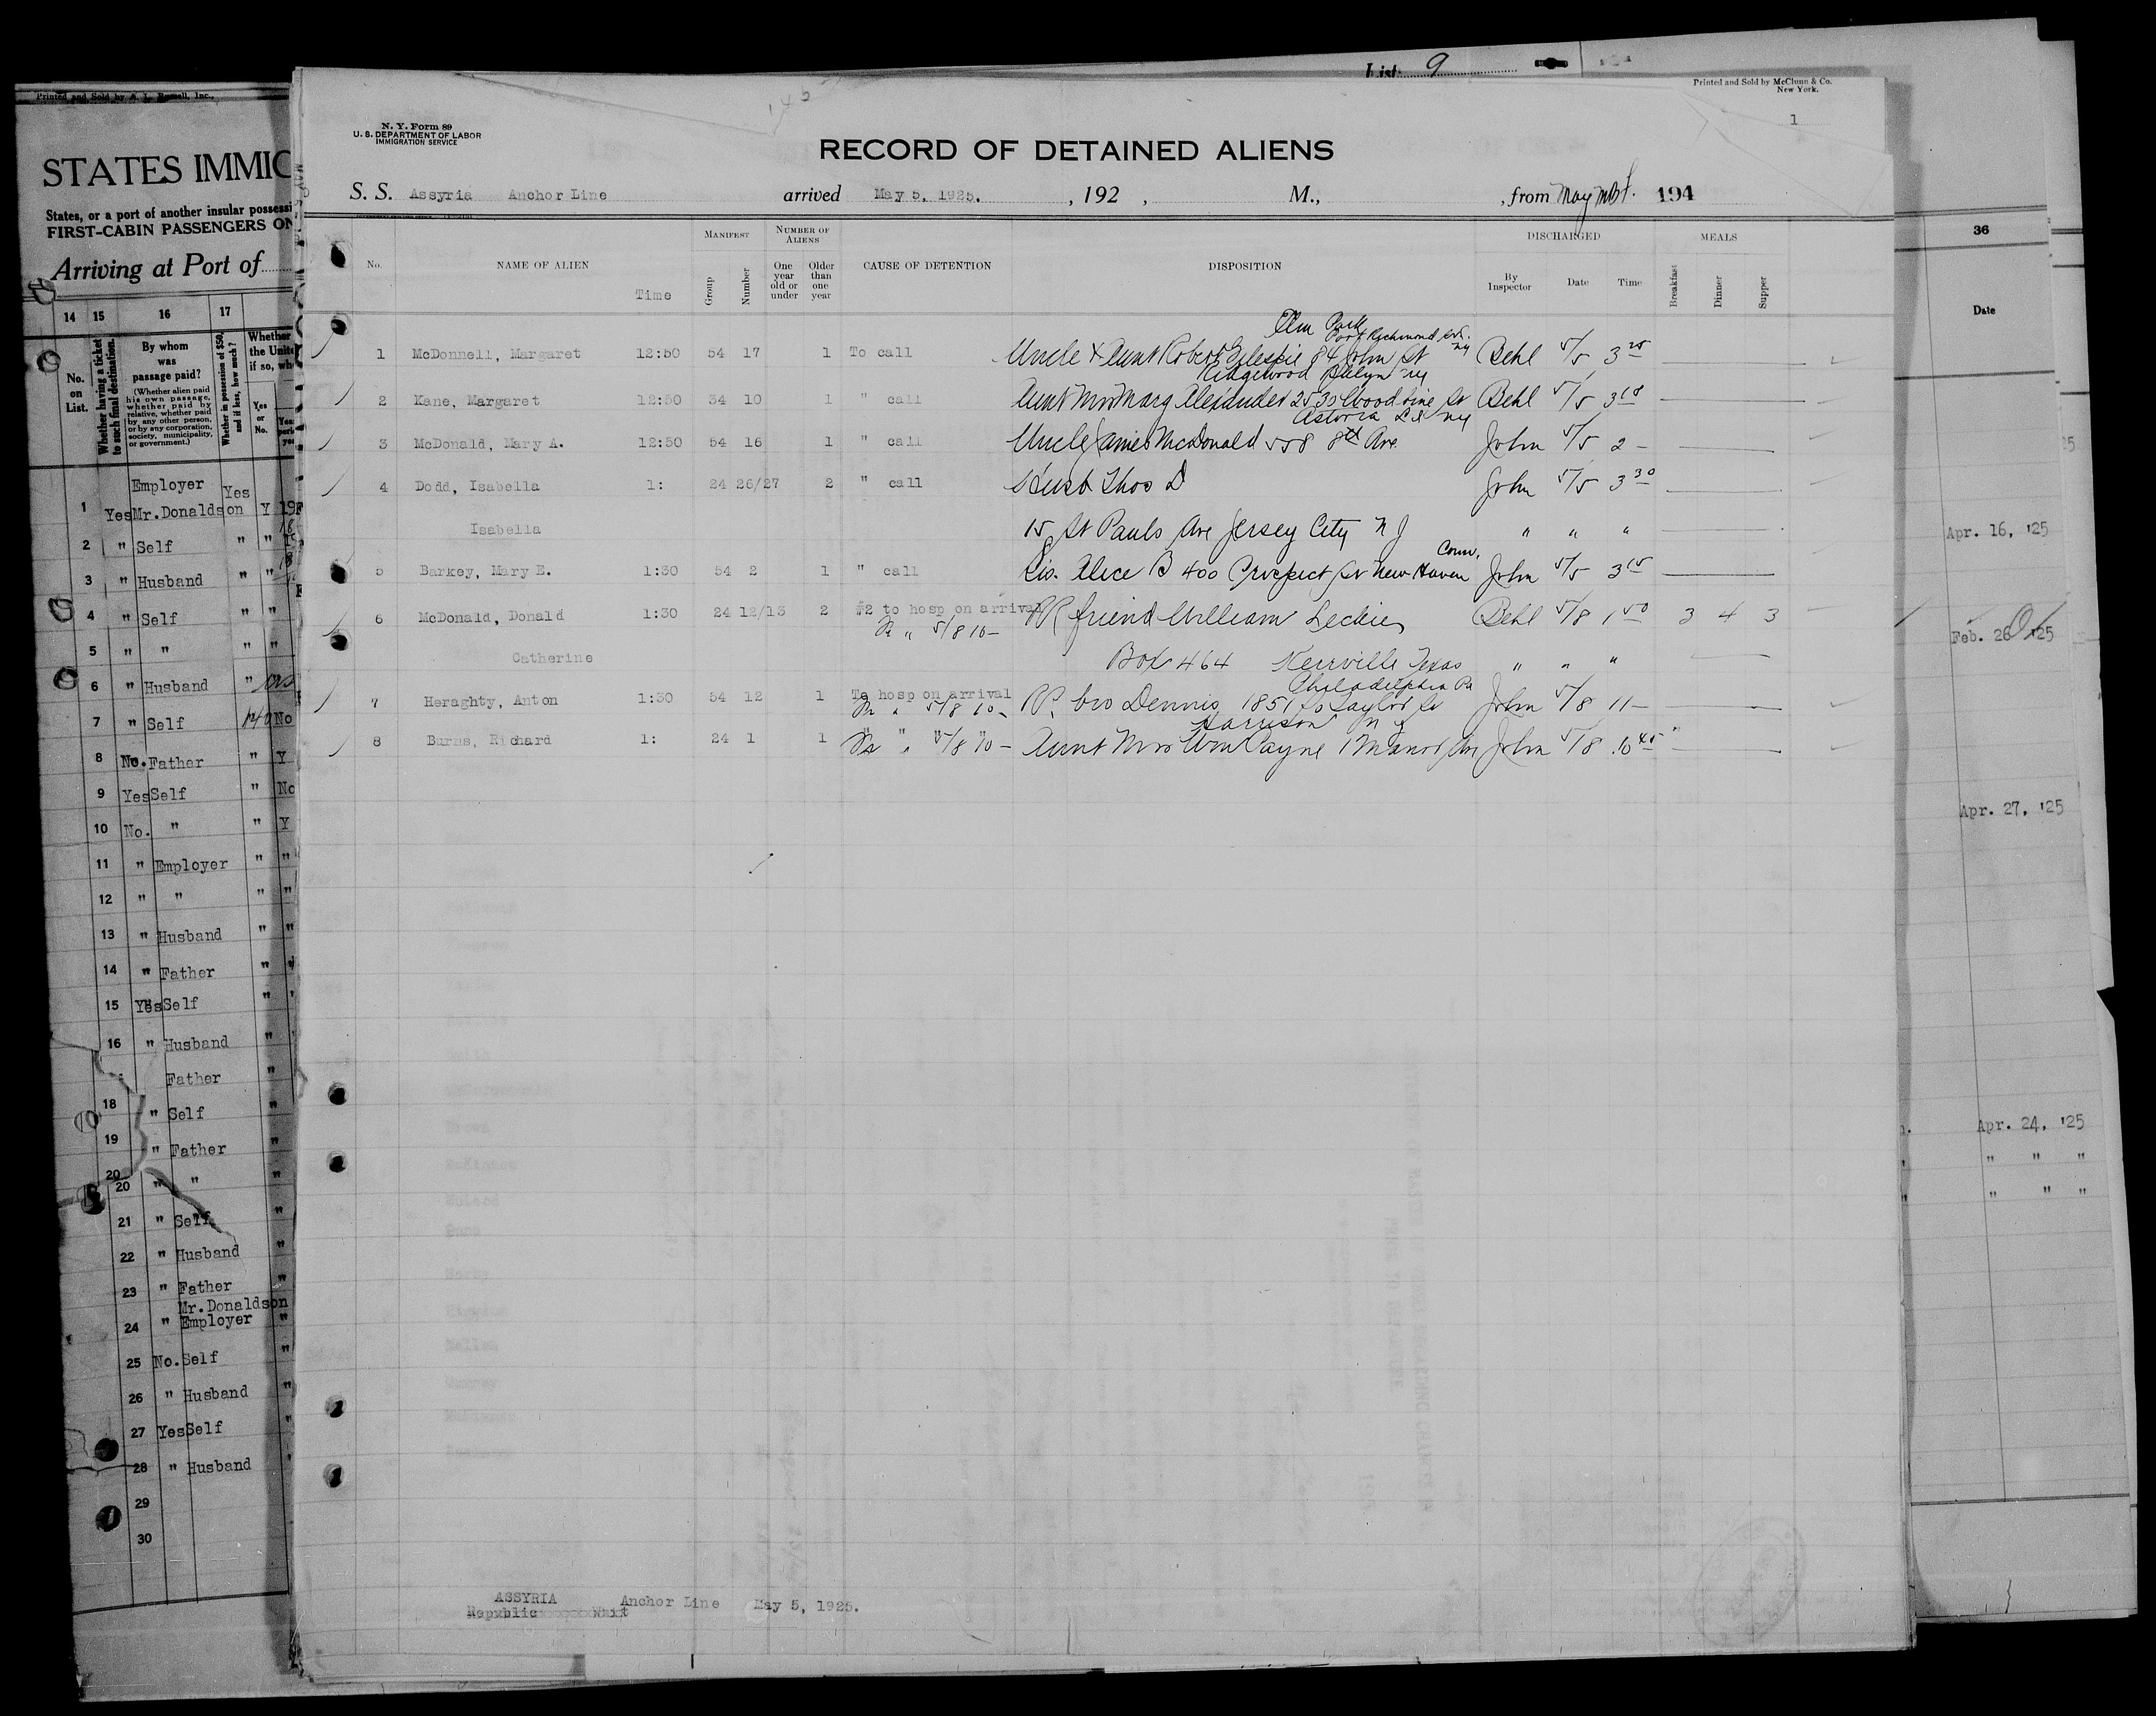 List 9
Printed and Sold by McClunn & Co.
New York.
1
N. Y. Form 89
U. S. DEPARTMENT OF LABOR
IMMIGRATION SERVICE
RECORD OF DETAINED ALIENS
S. S. Assyria Anchor Line arrived May 5, 1925. , 192 , M., , from 194
No. NAME OF ALIEN Time MANIFEST Group Number NUMBER OF ALIENS One year old or under Older than one year CAUSE OF DETENTION DISPOSITION DISCHARGED By Inspector Date Time MEALS Breakfast Dinner Supper
Elm Park
Port Richmond
1 McDonnell, Margaret 12:50 54 17 1 To call Uncle & Aunt Robert Gilespie 84 John St Behl 5/5 3 25
Ridgewood Bklyn NY
2 Kane, Margaret 12:50 34 10 1 " call Aunt Mrs Marg Alexander 2530 Woodbine St Behl 5/5 3 10
Astoria L I NY
3 McDonald, Mary A. 12:50 54 16 1 " call Uncle James McDonald 558 8th Ave John 5/5 2 -
4 Dodd, Isabella 1: 24 26/27 2 " call Husb Thos D John 5/5 3 30
Isabella 15 St Pauls Ave Jersey City N J " " "
Conn.
5 Barkey, Mary E. 1:30 54 2 1 " call Sis. Alice B 400 Prospect St New Haven John 5/5 3 15
6 McDonald, Donald 1:30 24 12/13 2 #2 to hosp on arrival RR friend William Leckie Behl 5/8 1 50 3 4 3
" 5/8 10-
Catherine Box 464 Kerrville Texas " " "
Philadelphia Pa
7 Heraghty, Anton 1:30 54 12 1 To hosp on arrival RR. bro Dennis 1851 So Taylor St John 5/8 11 -
" 5/8 10-
Harrison N Y
8 Burns, Richard 1: 24 1 1 " " 5/8 10 - Aunt Mrs Wm Payne 1 Manor Ave John 5/8 10 45
ASSYRIA Anchor Line May 5, 1925.
Republic
Printed and Sold by A. L. Russell, Inc.
STATES IMMIG
States, or a port of another insular possessi
FIRST-CABIN PASSENGERS ON
Arriving at Port of
14 15 16 17
No. on List.
Whether having a ticket to such final destination.
By whom was passage paid?
(Whether alien paid his own passage, whether paid by relative, whether paid by any other person, or by any corporation, society, municipality, or government.)
Whether in possession of $50, and if less, how much?
Whether
the Unite
if so, wh
Yes or No.
1 Yes Employer Mr.Donaldson Yes Y 19
2 " Self " "
3 " Husband " "
4 " Self " "
5 " " " "
6 " Husband "
7 " Self No
8 No. Father " Y
9 Yes Self " No
10 No. " " Y
11 " Employer " "
12 " " " "
13 " Husband " "
14 " Father "
15 Yes Self "
16 " Husband "
Father "
18 " Self "
19 " Father "
20
20 " " "
21 " Self "
22 " Husband "
23 " Father "
Mr.Donaldson
24 " Employer "
25 No. Self "
26 " Husband "
27 Yes Self "
28 " Husband
29
30
36
Date
Apr. 16, '25
Feb. 26 '25
Apr. 27, '25
Apr. 24, '25
" " "
" " "